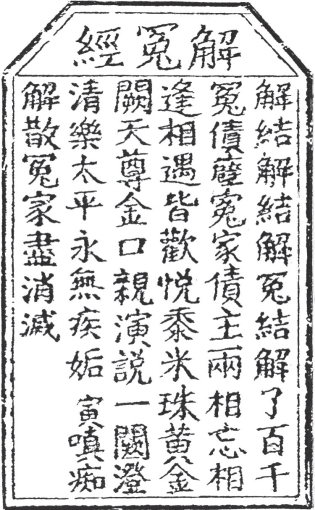 解冤經
解結解結解冤結解了百千
冤債孽寃家債主兩相忘相
逢相遇皆歡悅黍米珠黃金
闕天尊金口親演說一闕澄
清樂太平永無疾妬 寅嗔痴
解散冤家盡消滅